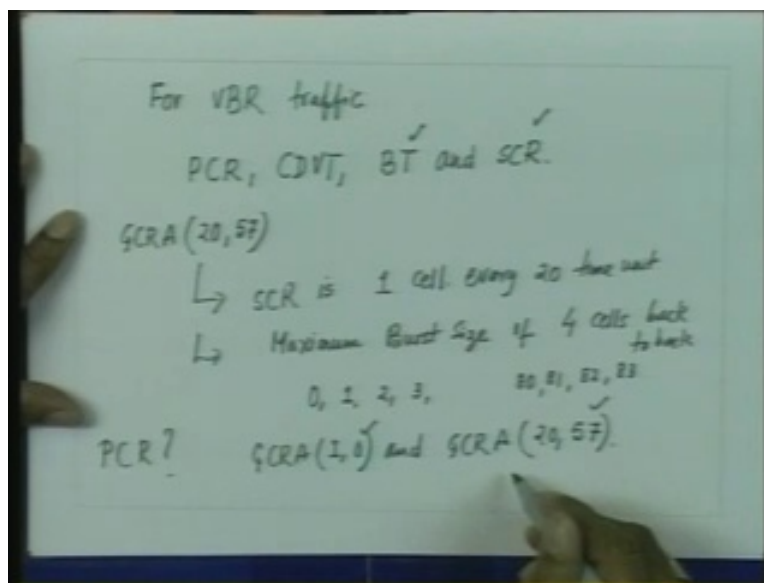 For VBR traffic
PCR, CDVT, BT and SCR.
GCRA(20,57)
↳ SCR is 1 cell every 20 time unit
↳ Maximum Burst Size of 4 cells back to back
0, 1, 2, 3, 80, 81, 82, 83
PCR? GCRA(1,0) and GCRA(20,57).